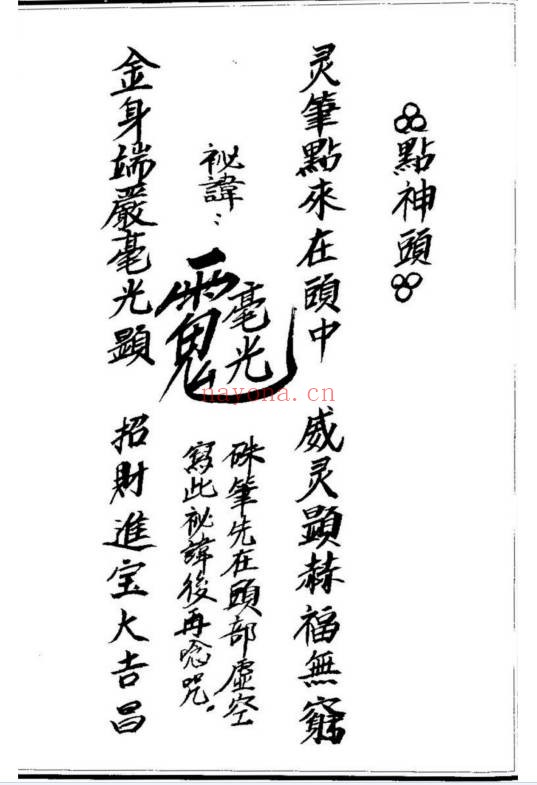 點神頭
灵筆點來在頭中　威灵顕赫福無窮
祕諱：
毫光
硃筆先在頭部虛空
寫此祕諱後再唸咒。
金身端嚴毫光顕　招財進宝大吉昌
nayona.cn